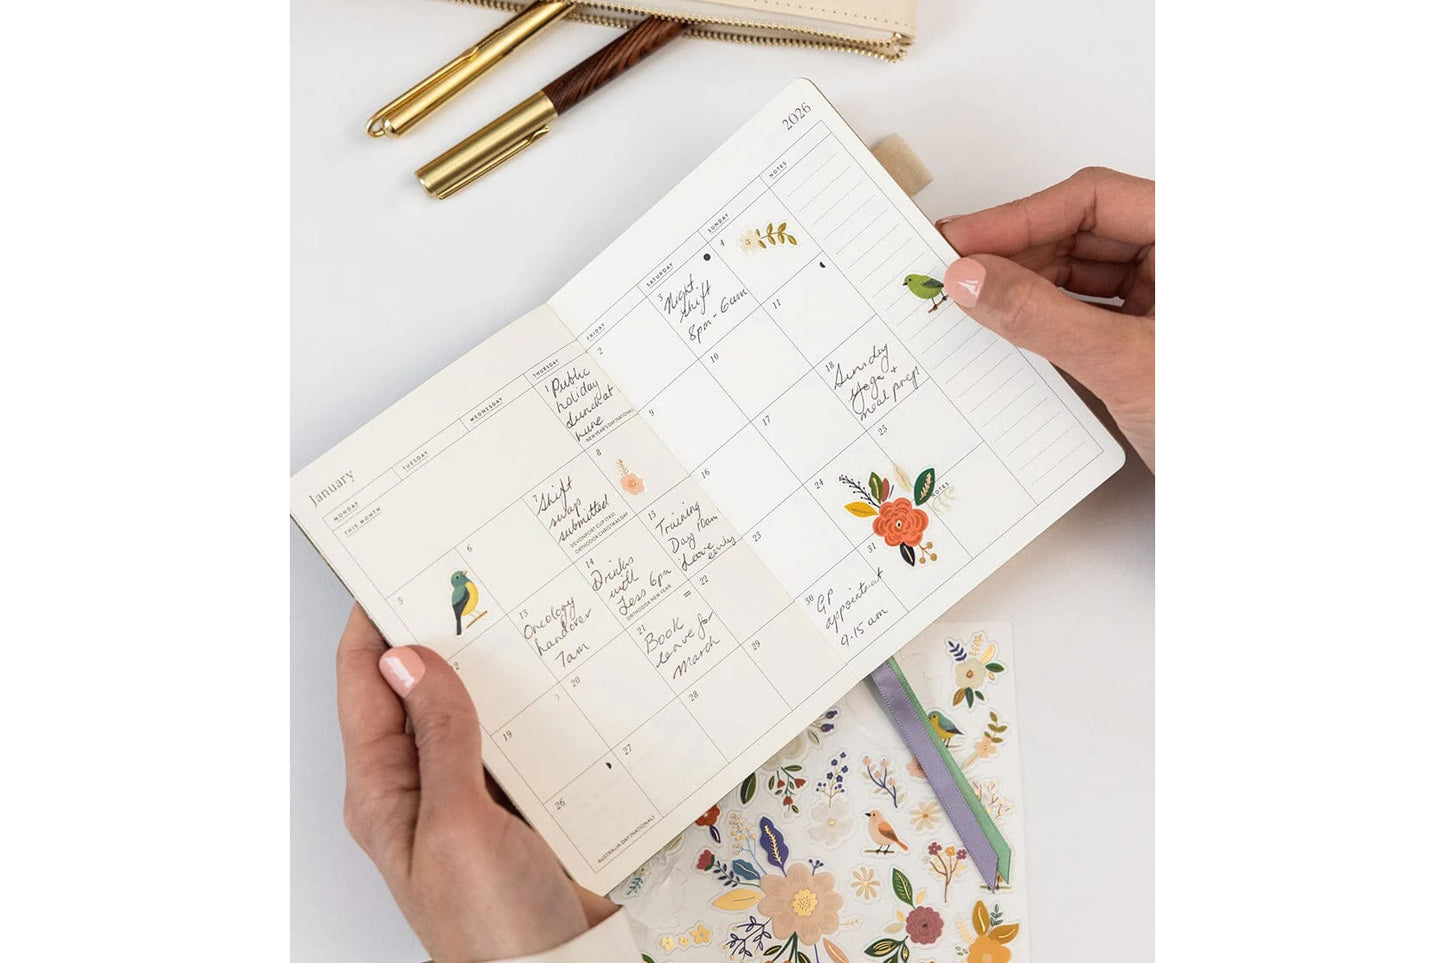 January
2026
MONDAY
TUESDAY
WEDNESDAY
THURSDAY
FRIDAY
SATURDAY
SUNDAY
NOTES
THIS MONTH
1
Public
holiday
Lunch at
home
NEW YEAR'S DAY (NATIONAL)
2
3
Night
shift
8pm - 6am
4
5
6
7
Shift
swap
submitted
DEVONPORT CUP (TAS)
ORTHODOX CHRISTMAS DAY
8
9
10
11
12
13
Oncology
handover
7am
14
Drinks
with
Jess 6pm
ORTHODOX NEW YEAR
15
Training
Day 10am
Leave
early
16
17
18
Sunday
yoga +
meal prep!
19
20
21
Book
leave for
March
22
23
24
25
NOTES
26
AUSTRALIA DAY (NATIONAL)
27
28
29
30
GP
appointment
9.15 am
31